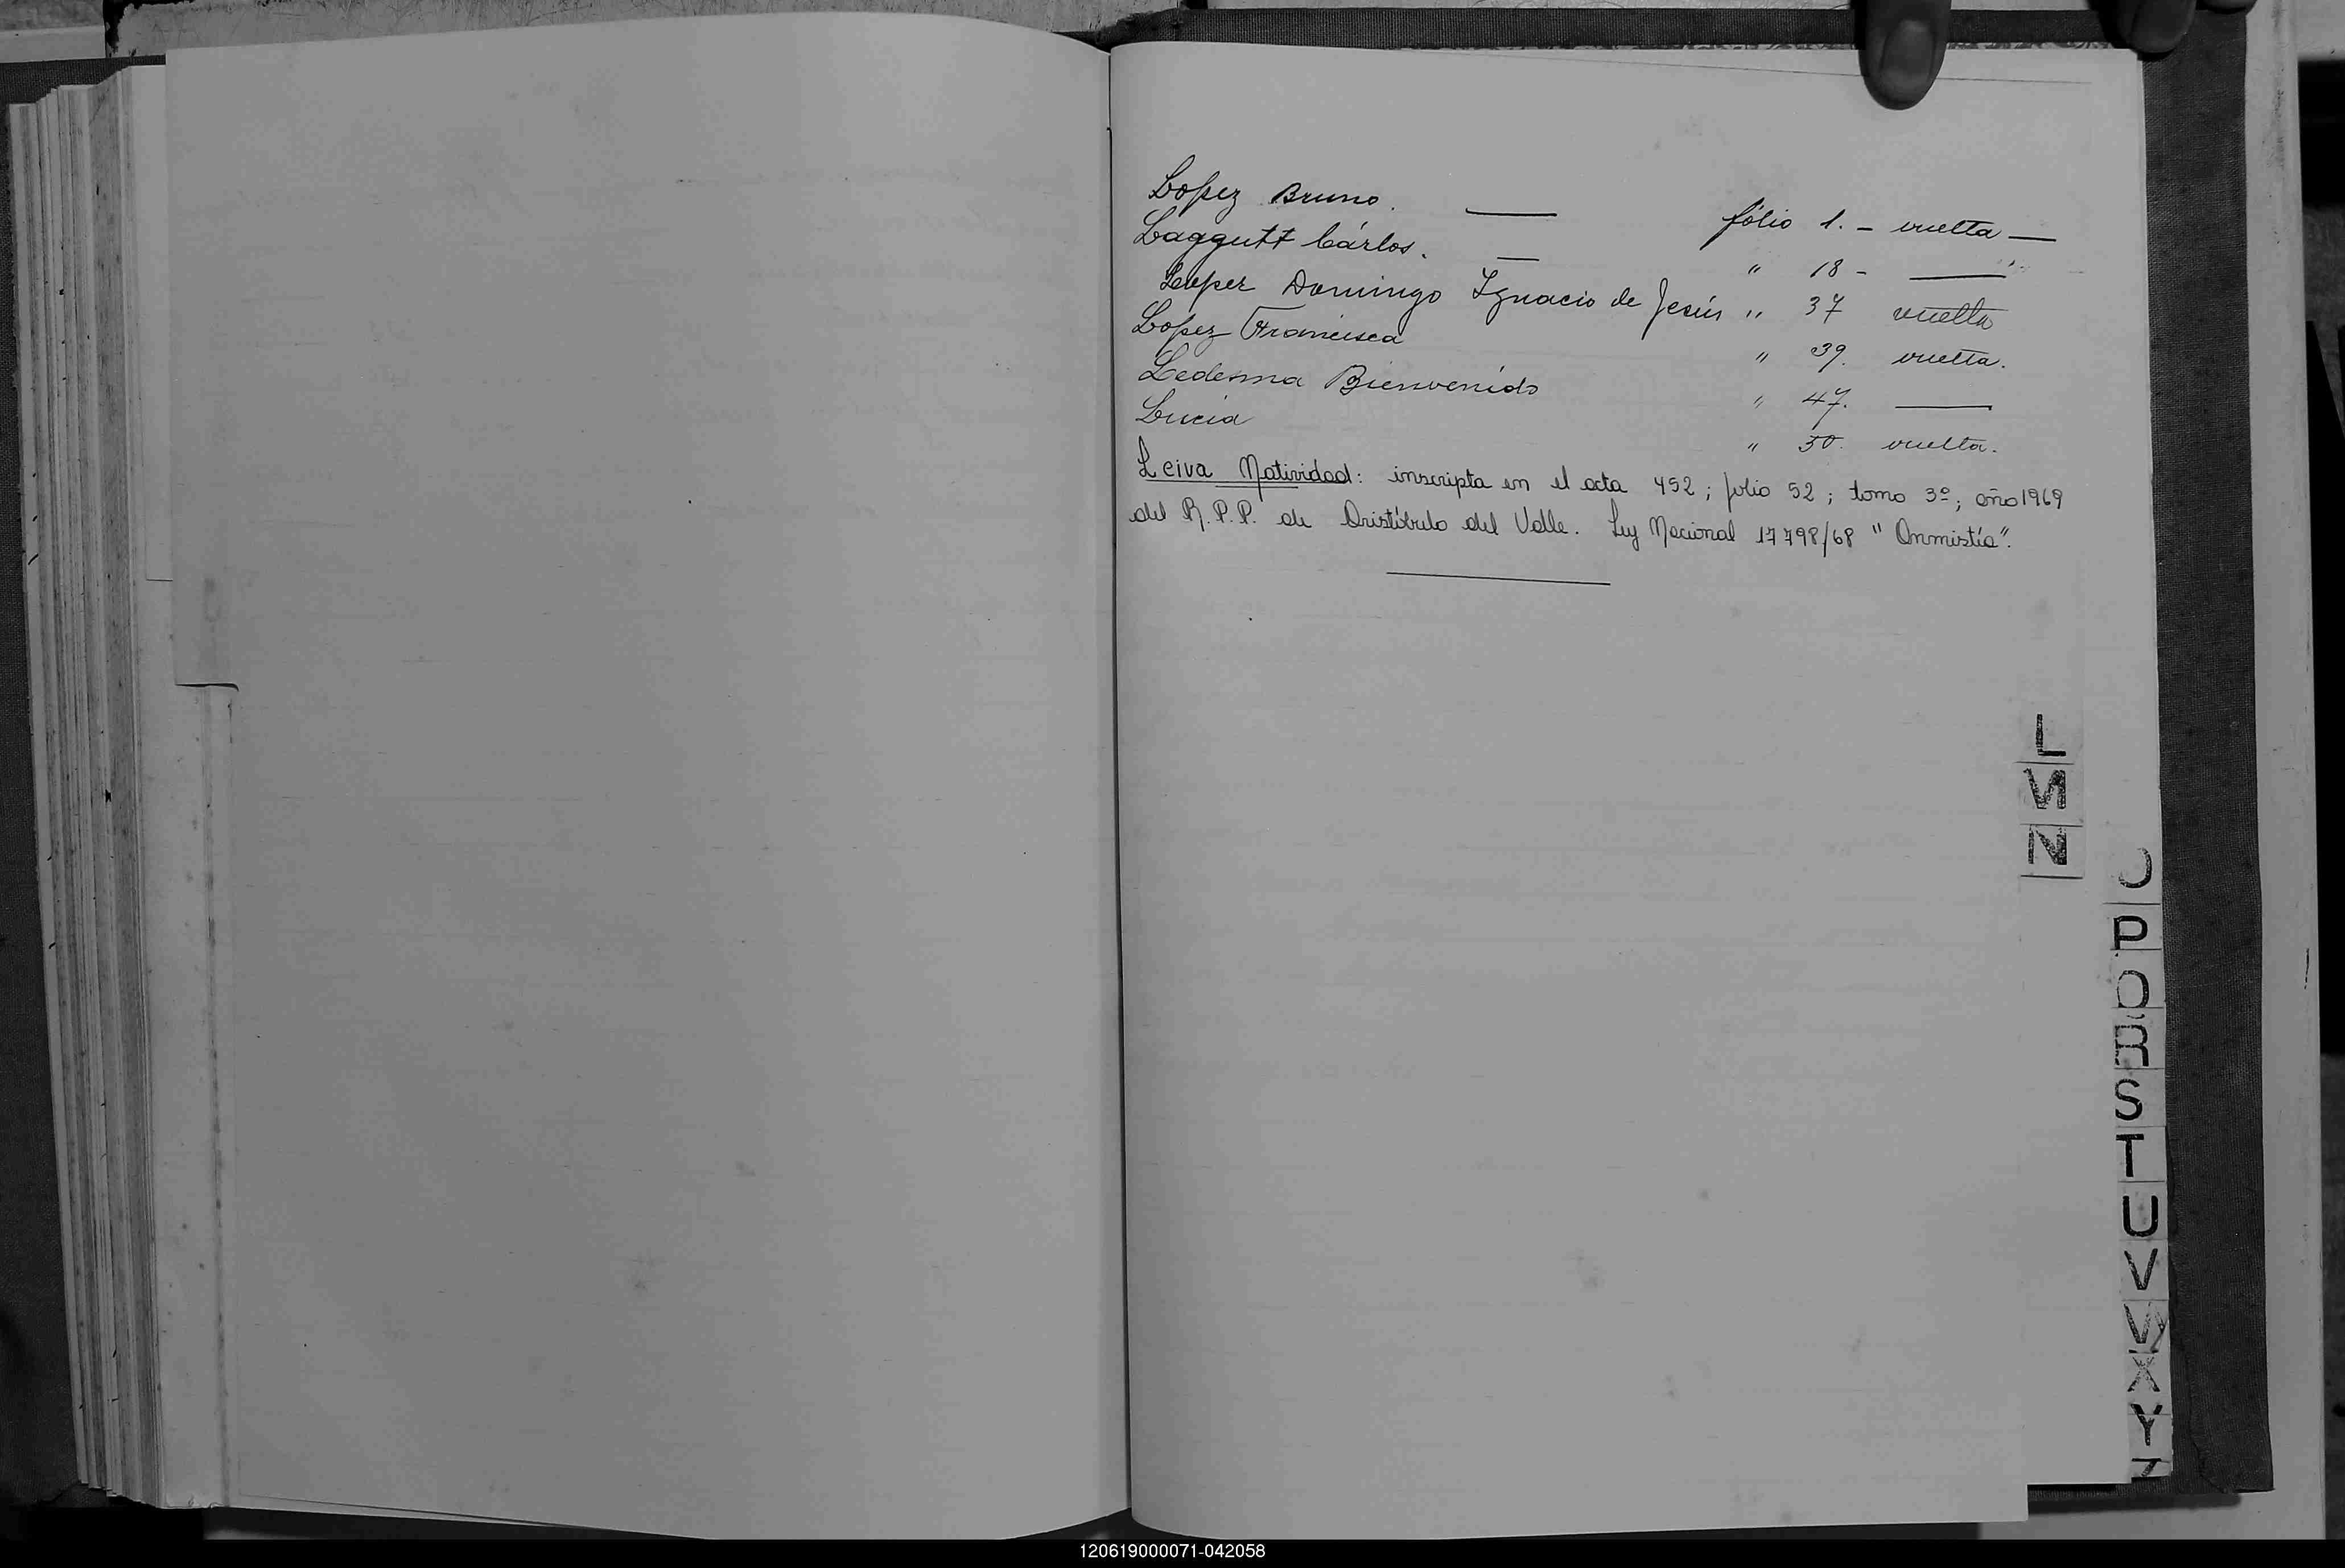 Lopez Bruno. — fólio 1. - vuelta —
Laggutt Cárlos. — " 18 - —
Loper Domingo Ignacio de Jesús " 37 vuelta
Lopez Francisca " 39. vuelta.
Ledesma Bienvenido " 47. —
Lucia " 50. vuelta.
Leiva Natividad: inscripta en el acta 452; folio 52; tomo 3º; año 1969
del R.P.P. de Aristóbulo del Valle. Ley Nacional 17798/68 "Anmistía".
L
M
N
O
P
Q
R
S
T
U
V
W
X
Y
Z
120619000071-042058